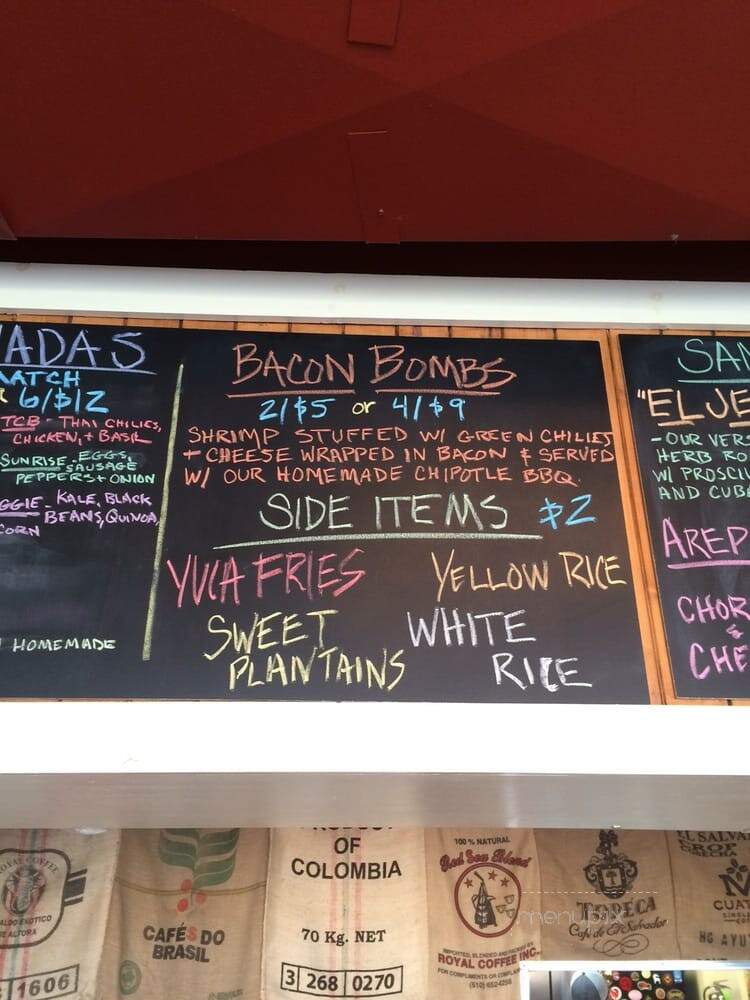 ADAS
ATCH
6/$12
TCB - THAI CHILIES,
CHICKEN, + BASIL
SUNRISE - EGGS,
SAUSAGE
PEPPERS + ONION
GGIE - KALE, BLACK
BEANS, QUINOA,
CORN
HOMEMADE
BACON BOMBS
2/$5 or 4/$9
SHRIMP STUFFED W/ GREEN CHILIES
+ CHEESE WRAPPED IN BACON & SERVED
W/ OUR HOMEMADE CHIPOTLE BBQ.
SIDE ITEMS $2
YUCA FRIES YELLOW RICE
SWEET PLANTAINS
WHITE RICE
SAN
"EL JE
- OUR VERS
HERB RO
W/ PROSCI
AND CUBA
AREP
CHOR
&
CHE
ROYAL COFFEE
1606
CAFÉS DO
BRASIL
PRODUCT
OF
COLOMBIA
70 Kg. NET
3 268 0270
100% NATURAL
Red Sea Blend
IMPORTED, BLENDED AND PACKED BY
ROYAL COFFEE INC.
FOR COMPLIMENTS OR COMPLAINTS
(510) 652-4256
Café de El Salvador
EL SALVAD
CROP
menupix